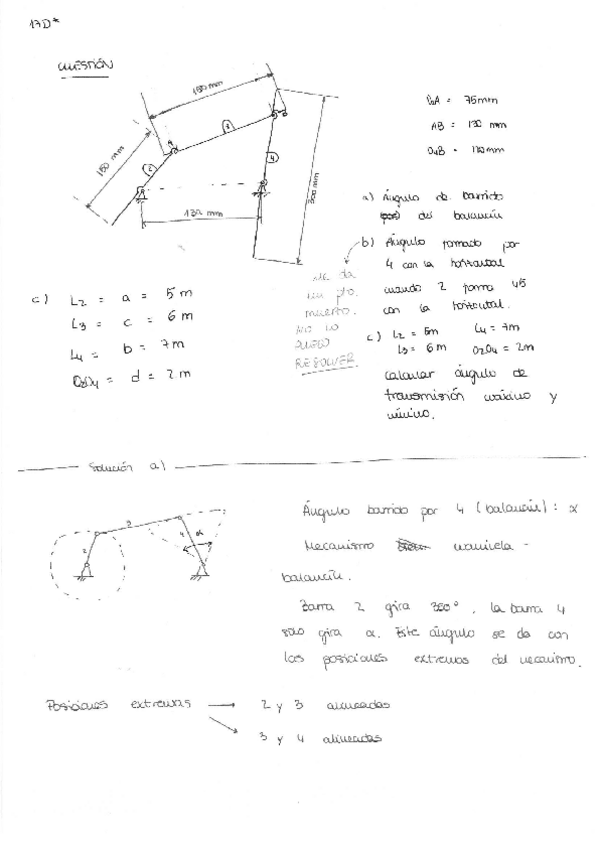 17D*
CUESTIÓN
180 mm
150 mm
2
3
4
300 mm
130 mm
AB = 130 mm
a) Ángulo de barrido
del balancín
b) Ángulo formado por
4 con la horizontal
cuando 2 forma 45
con la horizontal.
c) L2 = 5m L4 = 7m
L3 = 6m O2O4 = 2m
calcular ángulo de
transmisión máximo y
mínimo.
me da
un pto.
muerto.
NO LO
PUEDO
RESOLVER.
c) L2 = a = 5 m
L3 = c = 6 m
L4 = b = 7 m
O2O4 = d = 2 m
Solución a)
2
3
4
α
Ángulo barrido por 4 (balancín): α
Mecanismo manivela -
balancín.
Barra 2 gira 360°, la barra 4
solo gira α. Este ángulo se da con
las posiciones extremas del mecanismo.
Posiciones extremas → 2 y 3 alineadas
→ 3 y 4 alineadas